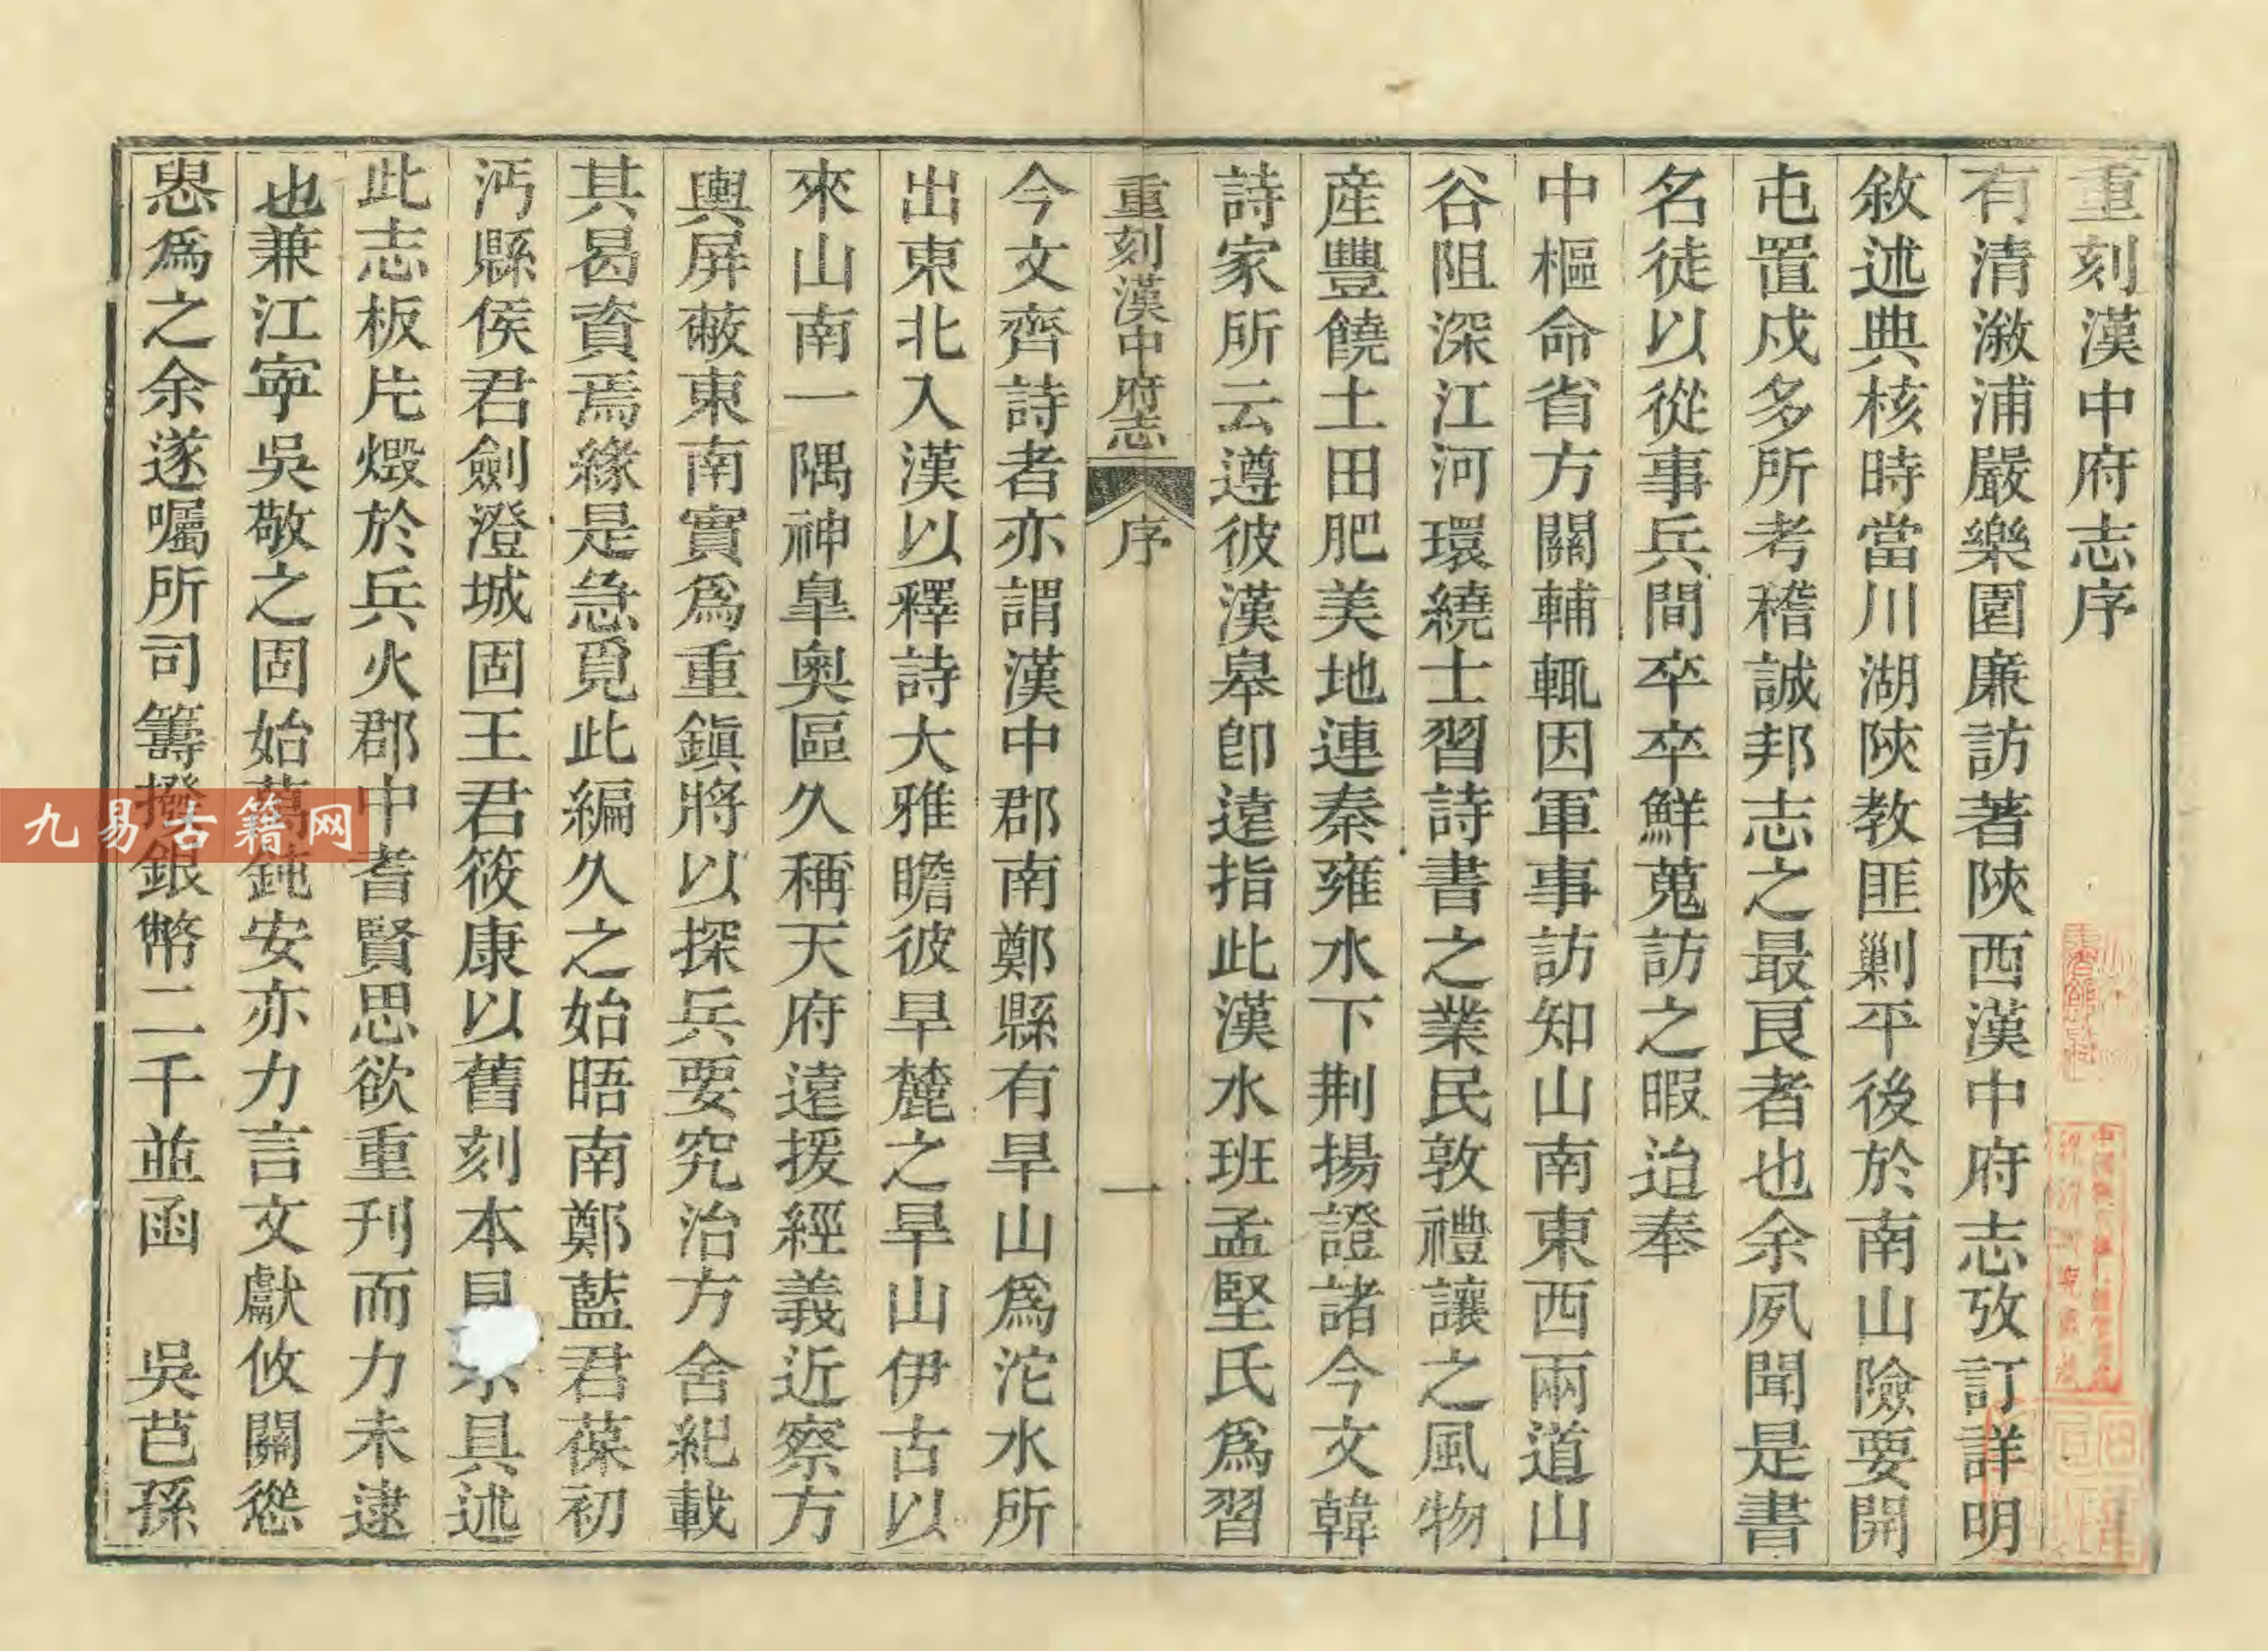 重刻漢中府志序
有清溆浦嚴樂園廉訪著陝西漢中府志攷訂詳明
敘述典核時當川湖陝教匪剿平後於南山險要開
屯置戍多所考稽誠邦志之最良者也余夙聞是書
名徒以從事兵間卒卒鮮蒐訪之暇迨奉
中樞命省方關輔輒因軍事訪知山南東西兩道山
谷阻深江河環繞士習詩書之業民敦禮讓之風物
産豐饒土田肥美地連秦雍水下荆揚證諸今文韓
詩家所云遵彼漢皋卽遠指此漢水班孟堅氏為習
重刻漢中府志 序 一
今文齊詩者亦謂漢中郡南鄭縣有旱山為沱水所
出東北入漢以釋詩大雅瞻彼旱麓之旱山伊古以
來山南一隅神臯奧區久稱天府遠援經義近察方
輿屏蔽東南實為重鎭將以探兵要究治方舍紀載
其曷資焉緣是急覓此編久之始晤南鄭藍君葆初
沔縣侯君劍澄城固王君筱康以舊刻本見示具述
此志板片燬於兵火郡中耆賢思欲重刊而力未逮
也兼江寧吳敬之固始萬鈍安亦力言文獻攸關慫
恖為之余遂囑所司籌撥銀幣二千並函 吳芑孫
九易古籍网